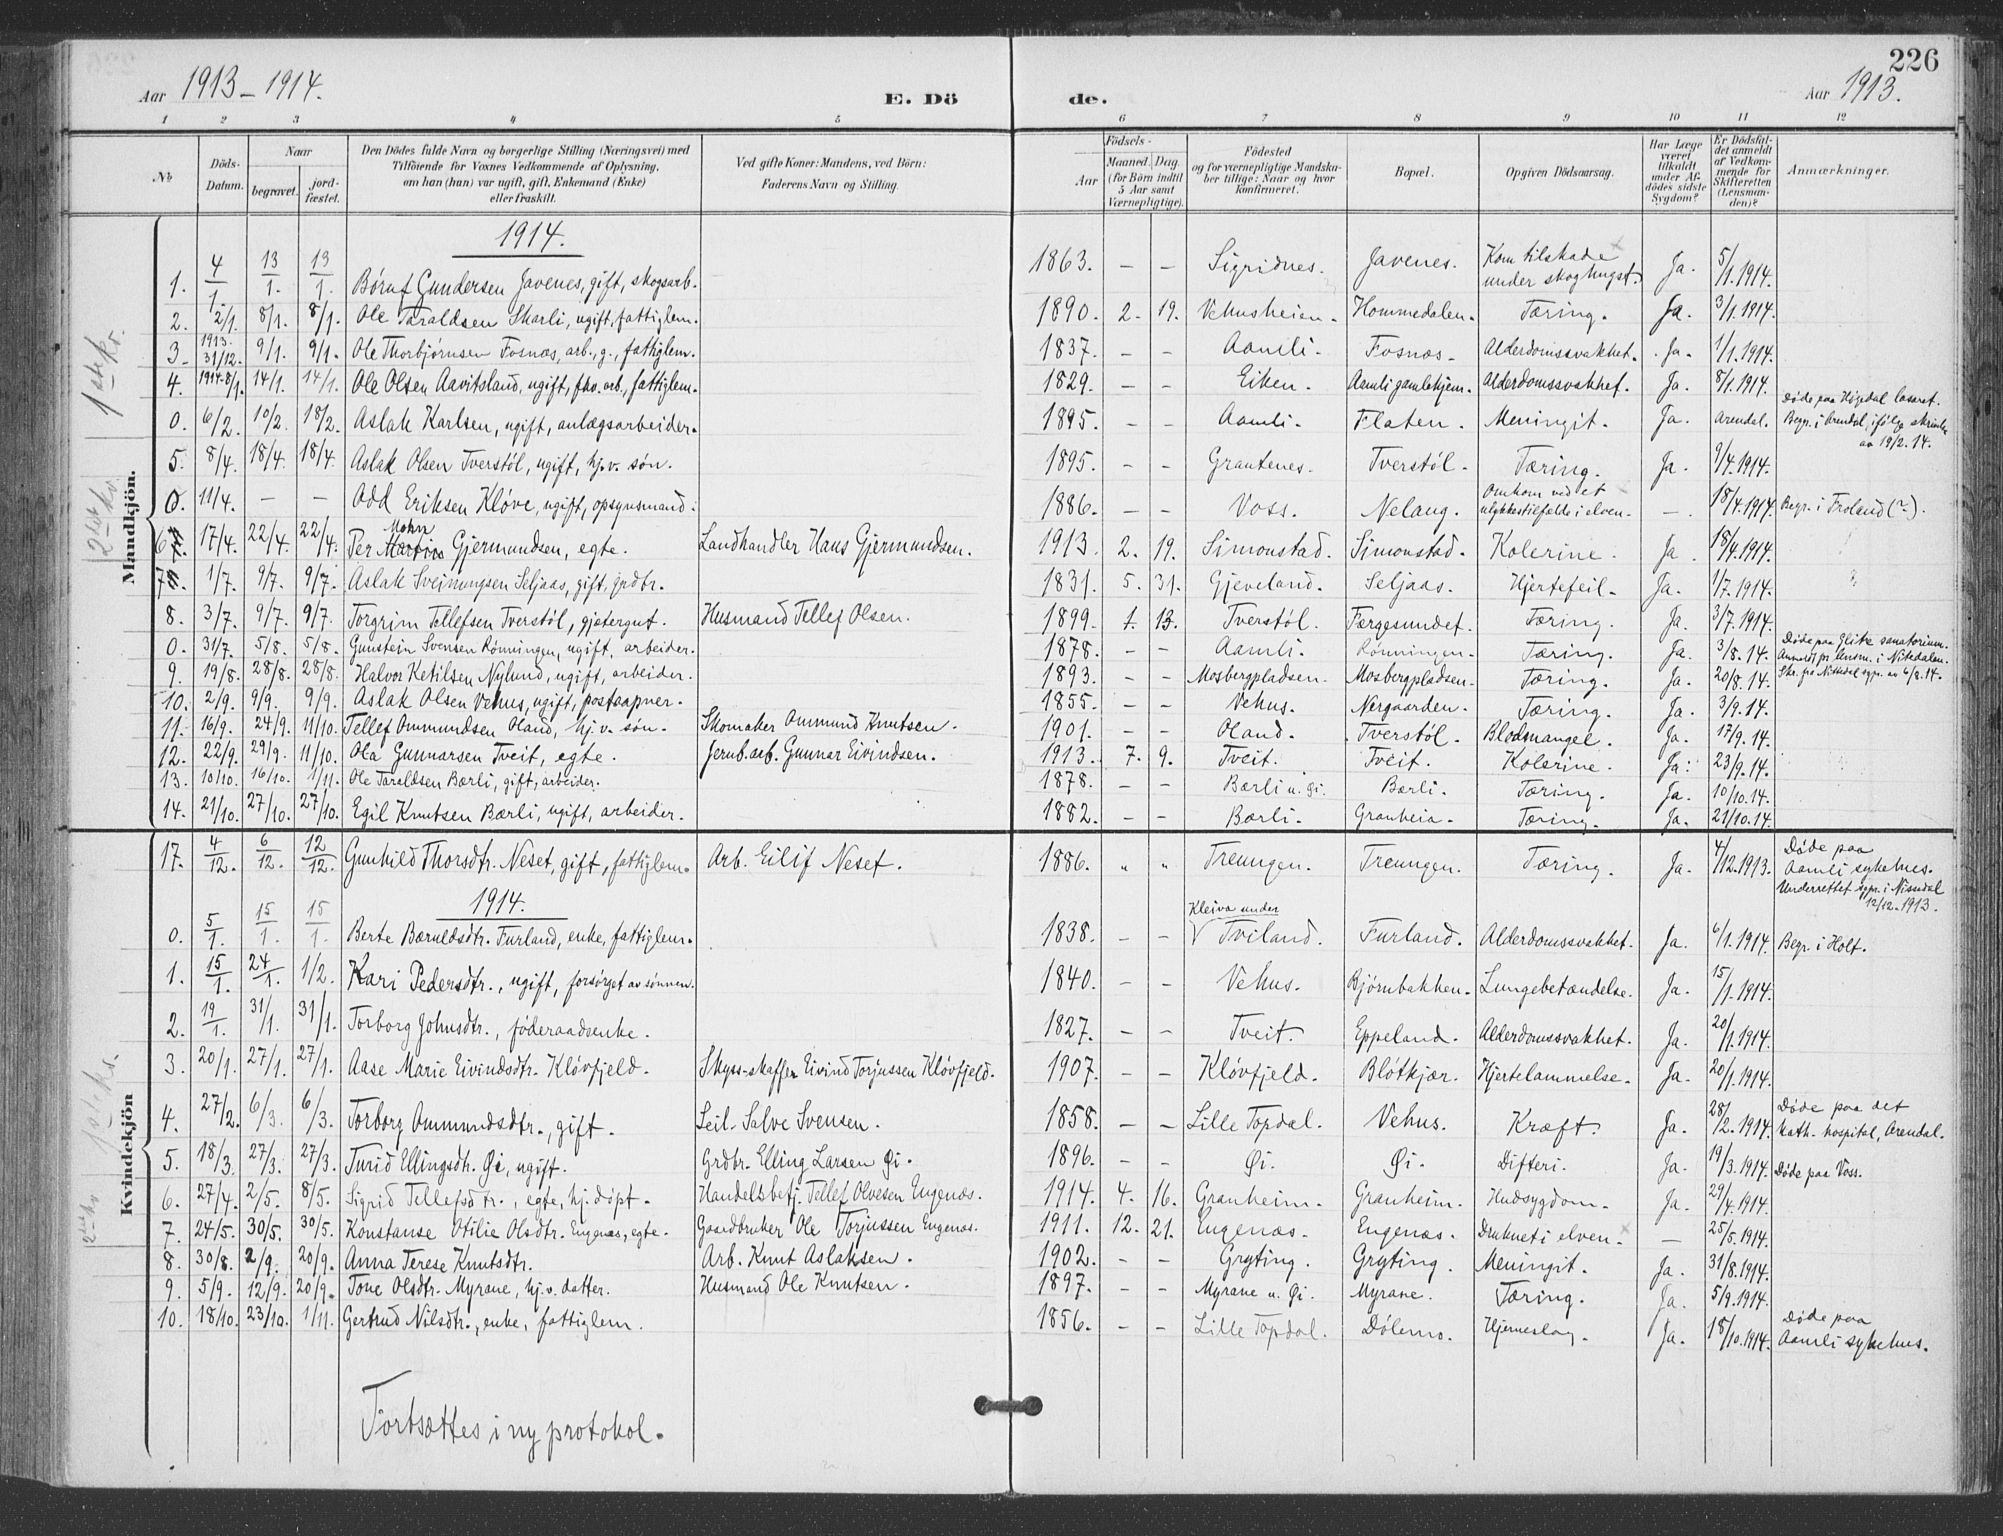 226
Aar 1913-1914. E. Dö de. Aar 1913.
1 2 3 4 5 6 7 8 9 10 11 12
No. Döds-Datum. Naar begravet. jord-fæstet. Den Dödes fulde Navn og borgerlige Stilling (Næringsvei) med Tilföiende for Voxnes Vedkommende af Oplysning, om han (hun) var ugift, gift, Enkemand (Enke) eller fraskilt. Ved gifte Koner: Mandens, ved Börn: Faderens Navn og Stilling. Födsels- Aar Maaned. Dag. (for Börn indtil 5 Aar samt Værnepligtige). Födested og for værnepligtige Mandskaber tillige: Naar og hvor konfirmeret. Bopæl. Opgiven Dödsaarsag. Har Læge været tilkaldt under Afdödes sidste Sygdom? Er Dödsfaldet anmeldt af Vedkommende for Skifteretten (Lensmanden)? Anmærkninger.
Mandkjön.
1914.
1. 4/1. 13/1. 13/1 Børuf Gundersen Javenes, gift, skogsarb. 1863. – – Sigridnes. Javenes. Kom tilskade under skoghugst. Ja. 5/1.1914.
2. 2/1. 8/1. 8/1. Ole Taraldsen Skarli, ugift, fattiglem. 1890. 2. 19. Vehusheien. Hommedalen. Tæring. Ja. 3/1.1914.
3. 1913. 31/12. 9/1. 9/1. Ole Thorbjørnsen Fosnæs, arb., g., fattiglem. 1837. – – Aamli. Fosnæs. Alderdomssvakhet. Ja. 1/1.1914.
4. 1914. 8/1. 14/1. 14/1. Ole Olsen Aavitsland, ugift, fhv. arb., fattiglem. 1829. – – Eiken. Aamli gamlehjem. Alderdomssvakhet. Ja. 8/1.1914.
0. 6/2. 10/2. 18/2. Aslak Karlsen, ugift, anlægsarbeider. 1895. – – Aamli. Flaten. Meningit. Ja. Arendal. Døde paa Høgedal lasaret. Begr. i Arendal, ifølge skrivelse av 19/2.14.
5. 8/4. 18/4. 18/4. Aslak Olsen Tverstöl, ugift, hj.v. søn. 1895. – – Grautenes. Tverstöl. Tæring. Ja. 9/4.1914.
0. 11/4. – – Odd Eriksen Kløve, ugift, opsynsmand. 1886. – – Voss. Nelaug. Omkom ved et ulykkestilfælde i elven. –. 18/4.1914. Begr. i Froland (?).
6. 17/4. 22/4. 22/4. Per Mohn Gjermundsen, egte. Landhandler Hans Gjermundsen. 1913. 2. 19. Simonstad. Simonstad. Kolerine. Ja 18/4.1914.
7. 1/7. 9/7. 9/7. Aslak Sveinungsen Seljaas, gift, grdbr. 1831. 5. 31. Gjeveland. Seljaas. Hjertefeil. Ja. 1/7.1914.
8. 3/7. 9/7. 9/7. Torgrim Tellefsen Tverstöl, gjætergut. Husmand Tellef Olsen. 1899. 1. 13. Tverstöl. Færgesundet. Tæring. Ja. 3/7.1914.
0. 31/7. 5/8. 5/8. Gunstein Svensen Rönningen, ugift, arbeider. 1878. – – Aamli. Rönningen. Tæring. Ja. 3/8.14. Døde paa Glitre sanatorium. Anmeldt pr. lensm. i Nitedalen. Skr. fra Nittedal sgpr. av 6/8.14.
9. 19/8. 28/8. 28/8. Halvor Ketilsen Nylund, ugift, arbeider. 1893. – – Mosbergpladsen. Mosbergpladsen. Tæring. Ja. 20/8.14.
10. 2/9. 9/9. 9/9. Aslak Olsen Vehus, ugift, postaapner. 1855. – – Vehus. Nergaarden. Tæring. Ja. 3/9.14.
11. 16/9. 24/9. 11/10. Tellef Ommundsen Oland, hj.v. søn. Skomaker Ommund Knutsen. 1901. – – Oland. Tverstöl. Blodmangel. Ja. 17/9.14.
12. 22/9. 29/9. 11/10. Ola Gunnarsen Tveit, egte. Jernb.arb. Gunnar Eivindsen. 1913. 7. 9. Tveit. Tveit. Kolerine. Ja. 23/9.14.
13. 10/10. 16/10. 1/11. Ole Taraldsen Bærli, gift, arbeider. 1878. – – Bærli u. Øi. Bærli. Tæring. Ja. 10/10.14.
14. 21/10. 27/10. 27/10. Egil Knutsen Bærli, ugift, arbeider. 1882. – – Bærli. Granheia. Tæring. Ja. 21/10.14.
1ste kv.
2det kv.
Kvindekjön
17. 4/12. 6/12. 12/12. Gunhild Thorsdtr. Neset, gift, fattiglem. Arb. Eilif Neset. 1886. " " Treungen. Treungen. Tæring. Ja. 4/12.1913. Døde paa Aamli sykehus. Underrettet sgpr. i Nissedal 12/12.1913.
1914.
0. 5/1. 15/1. 15/1. Berte Bæruldsdtr. Furland, enke, fattiglem. 1838. – – Kleiva under Tviland. Furland. Alderdomssvakhet. Ja. 6/1.1914. Begr. i Holt.
1. 15/1. 24/1. 1/2. Kari Pedersdtr., ugift, forsørget av sønnen. 1840. – – Vehus. Bjørnbakken. Lungebetændelse. Ja. 15/1.1914.
2. 19/1. 31/1. 31/1. Torborg Johnsdtr., föderaadsenke. 1827. – – Tveit. Eppeland. Alderdomssvakhet. Ja. 20/1.1914.
3. 20/1. 27/1. 27/1. Aase Marie Eivindsdtr. Kløvfjeld. Skyss-skaffer Eivind Torjussen Kløvfjeld. 1907. – – Kløvfjeld. Blötkjær. Hjertelammelse. Ja. 20/1.1914.
4. 27/2. 6/3. 6/3. Torborg Ommundsdtr., gift. Leil. Salve Svensen. 1858. – – Lille Topdal. Vehus. Kræft. Ja. 28/2.1914. Døde paa det kath. hospital, Arendal.
5. 18/3. 27/3. 27/3. Turid Ellingsdtr. Øi, ugift. Grdbr. Elling Larsen Øi. 1896. – – Øi. Øi. Difteri. Ja. 19/3.1914. Døde paa Voss.
6. 27/4. 2/5. 8/5. Sigrid Tellefsdtr., egte, hj.döpt. Handelsbetj. Tellef Olvesen Engenæs. 1914. 4. 16. Granheim. Granheim. Hudsygdom. Ja. 29/4.1914.
7. 24/5. 30/5. 30/5. Konstanse Otilie Olsdtr. Engenæs, egte. Gaardbruker Ole Torjussen Engenæs. 1911. 12. 21. Engenæs. Engenæs. Druknet i elven. – 25/5.1914.
8. 30/8. 2/9. 20/9. Anna Terese Knutsdtr. Arb. Knut Aslaksen. 1902. – – Gryting. Gryting. Meningit. Ja. 31/8.1914.
9. 5/9. 12/9. 20/9. Tone Olsdtr. Myrane, hj.v. datter. Husmand Ole Knutsen. 1897. – – Myrane u. Øi. Myrane. Tæring. Ja. 5/9.1914.
10. 18/10. 23/10. 1/11. Gertrud Nilsdtr., enke, fattiglem. 1856. – – Lille Topdal. Dölemo. Hjerneslag. Ja. 18/10.1914. Døde paa Aamli sykehus.
2det kv
Fortsættes i ny protokol.